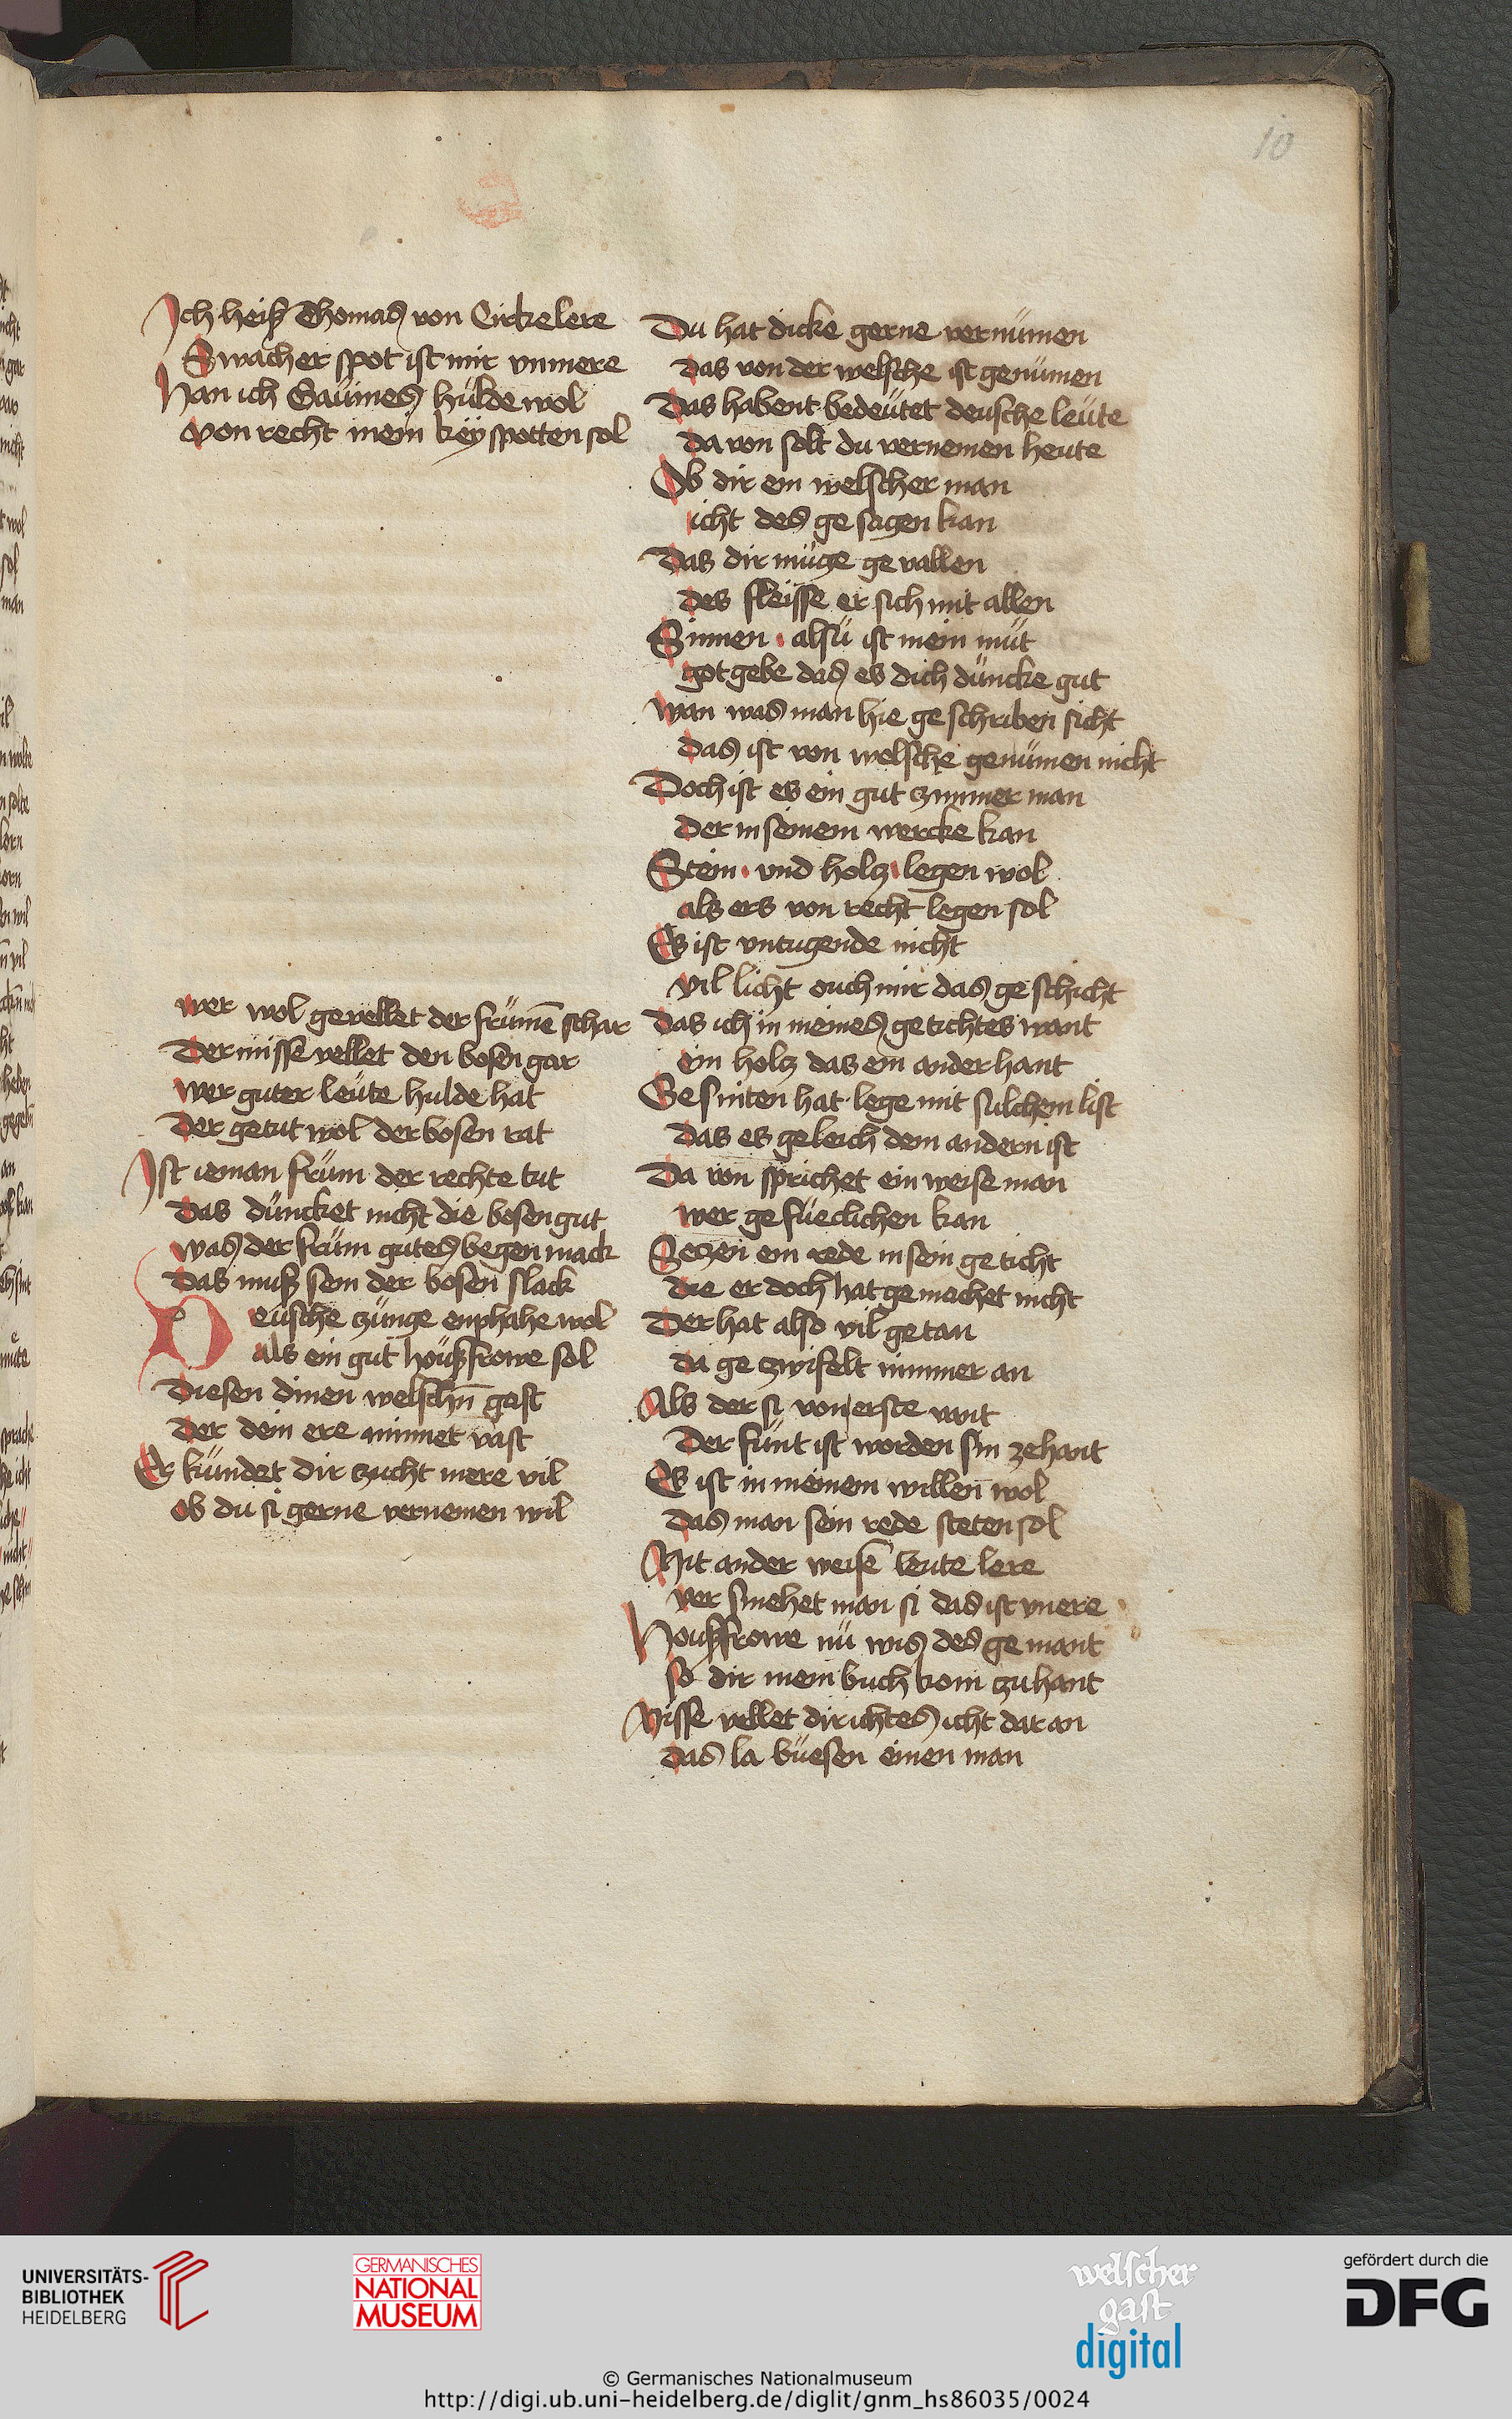 10
Ich heiß Thomas von Cirkelere
Swacher spot ist mir vnmere
Han ich Gaŭmes hŭlde wol
von recht mein keÿ spotten sol
wer wol gevellet der frŭmē schar
Der misse vellet den bosen gar
wer guter leŭte hulde hat
Der getut wol der bosen rat
Ist ieman frŭm der rechte tut
Das dŭncket nicht die bosen gut
was der frŭm gutes began mack
Das muß sein der bosen slack
Deŭsche zŭnge enphahe wol
als ein gut hoŭßfrowe sol
Diesen dinen welschn̄ gast
Der dein ere minnet vast
Er kŭndet dir zucht mere vil
ob du si gerne vernemen wil
Du hat dicke gerne vernŭmen
Das von der welsche ist genŭmen
Das habent bedeŭtet deusche leŭte
Da von solt du vernemen heute
Ob dir ein welscher man
icht des ge sagen kan
Das dir mŭge ge vallen
des fleisse er sich mit allen
Sinnen · alsŭ ist mein mŭt
got gebe das es dich dŭncke gut
wan was man hie ge schriben sicht
das ist von welsche genŭmen nicht
Doch ist es ein gut zimmer man
Der in seinem wercke kan
Stein · vnd holtz · legen wol
als ers von recht legen sol
Es ist vntugende nicht
vil licht ouch mir das ge schicht
Das ich in meines getichtes want
ein holtz das ein ander hant
Gesniten hat · lege mit sulchem list
Das es geleich dem andern ist
Da von sprichet ein weise man
wer ge fŭeclichen kan
Setzen ein rede in sein ge ticht
die er doch hat ge machet nicht
Der hat also vil getan
da ge zwifelt nimmer an
Als der si von erste vant
Der fŭnt ist worden sin zehant
Es ist in meinem willen wol
Das man sein rede steten sol
Mit ander weisē leute lere
ver smehet man si das ist vnere
Houßfrowe nŭ wis des ge mant
so dir mein buch kom zu hant
Misse vellet dir ichtes icht dar an
das la bŭesen einen man
UNIVERSITÄTS-
BIBLIOTHEK
HEIDELBERG
GERMANISCHES
NATIONAL
MUSEUM
welscher
gast
digital
gefördert durch die
DFG
© Germanisches Nationalmuseum
http://digi.ub.uni-heidelberg.de/diglit/gnm_hs86035/0024